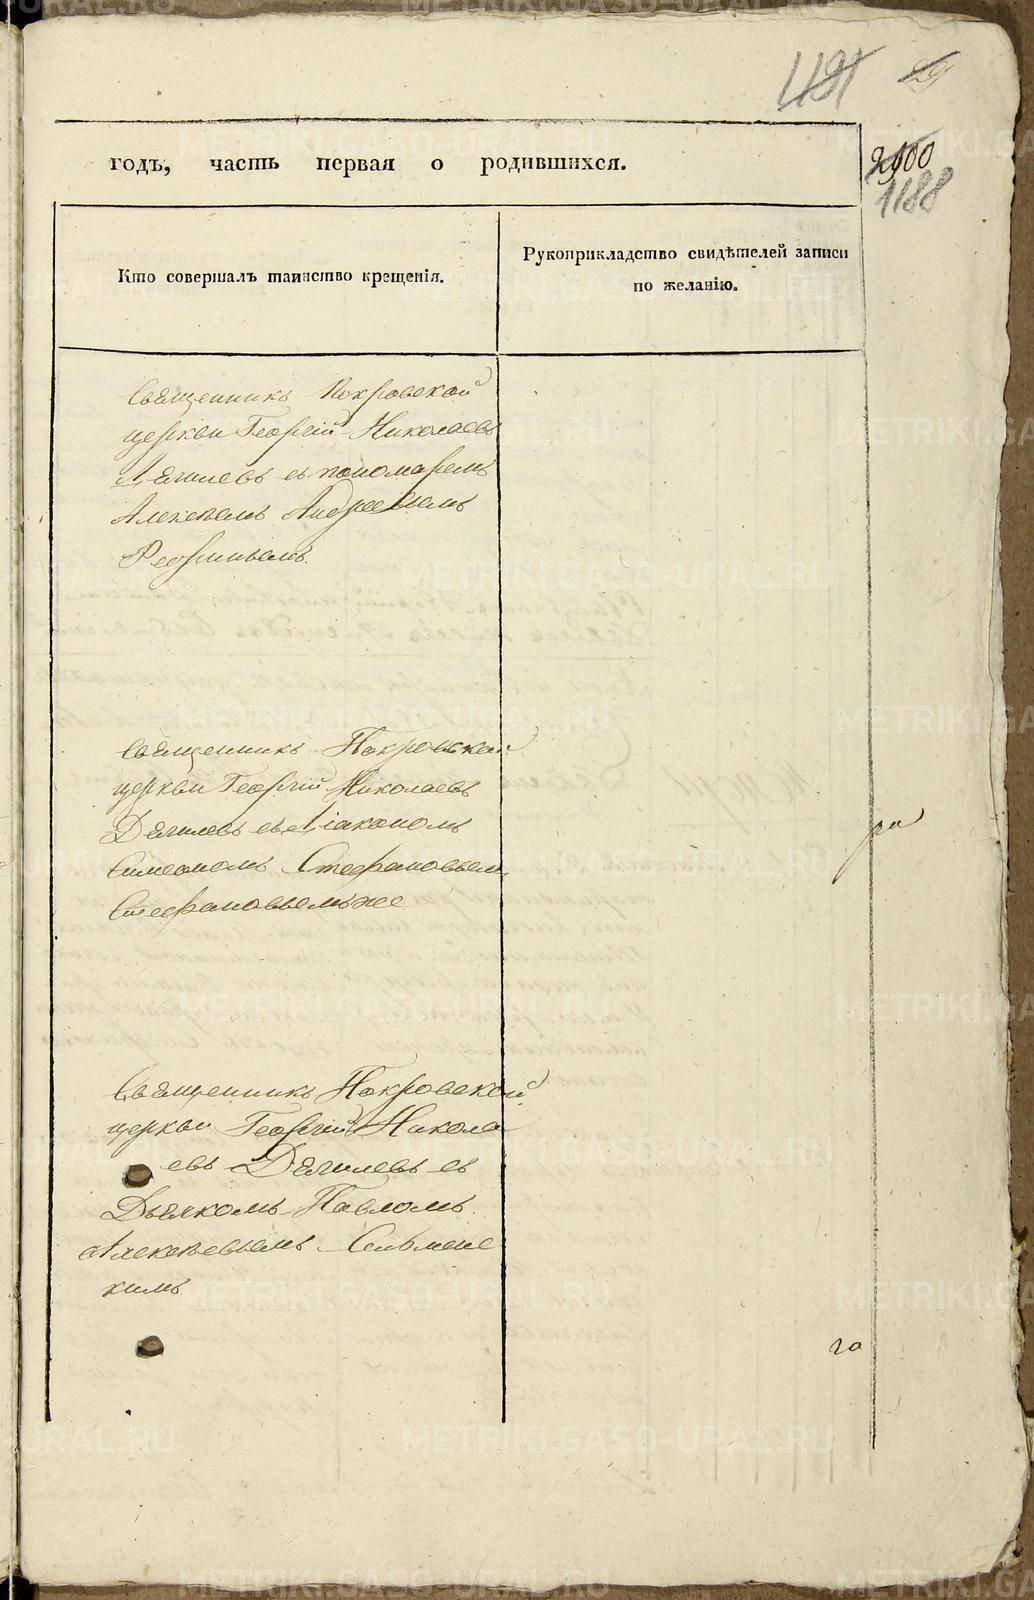 1191 29
годъ, часть первая о родившихся.
2900
1188
Кто совершалъ таинство крещенія.
Рукоприкладство свидѣтелей записи
по желанію.
Священникъ Покровской
церкви Георгій Николаевъ
Дягилевъ съ пономаремъ
Алексѣемъ Андреевымъ
Священникъ Покровской
церкви Георгій Николаевъ
Дягилевъ съ Діакономъ
Симеономъ Стефановымъ
Стефановымъ же
ра
Священникъ Покровской
церкви Георгій Никола
евъ Дягилевъ съ
Дьячкомъ Павломъ
Алексѣевымъ Сельменс
кимъ
го
METRIKI.GASO-URAL.RU